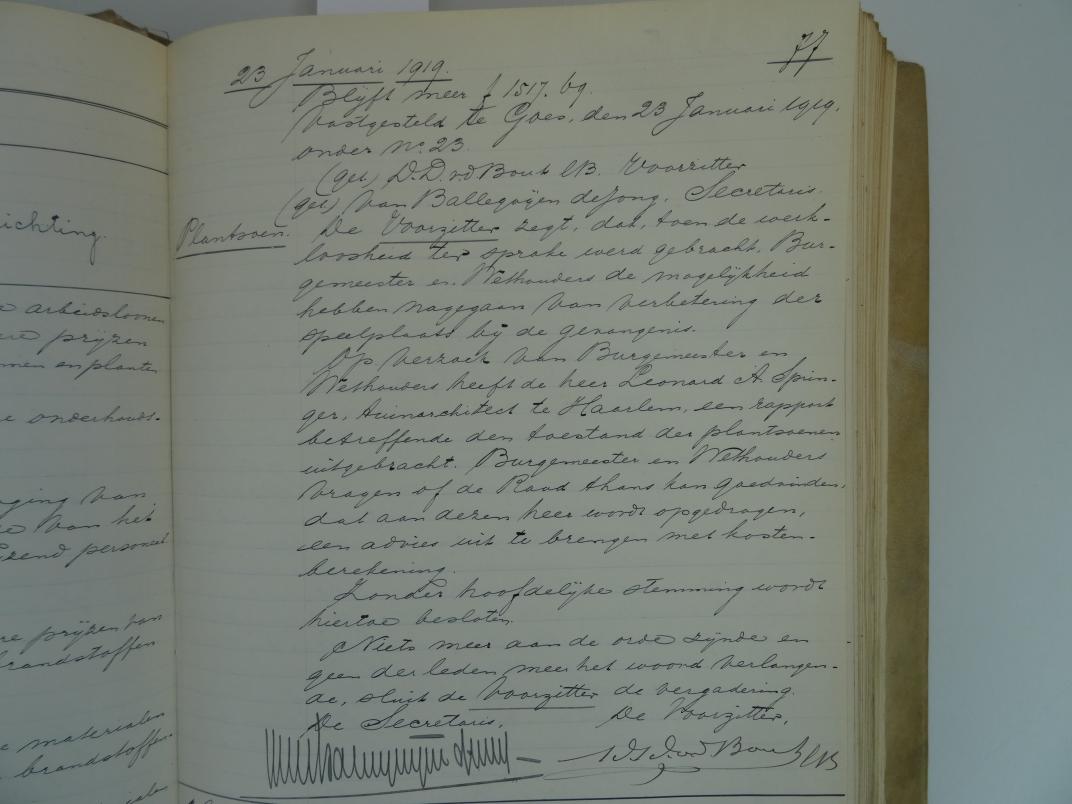 ichting.
arbeidsloonen
prijzen
en planten
onderhouds-
ging van
van het
personeel
re prijzen van
brandstoffen
materialen
brandstoffen
77
23 Januari 1919.
Blijft meer f 1517.69.
Vastgesteld te Goes, den 23 Januari 1919,
onder no. 23.
(get) D.D. v.d. Bout LB. Voorzitter
(get) van Ballegoijen de Jong, Secretaris.
Plantsoen.
De Voorzitter zegt, dat, toen de werk-
loosheid ter sprake werd gebracht, Bur-
gemeester en Wethouders de mogelijkheid
hebben nagegaan van verbetering der
speelplaats bij de gevangenis.
Op verzoek van Burgemeester en
Wethouders heeft de heer Leonard A. Sprin-
ger, tuinarchitect te Haarlem, een rapport
betreffende den toestand der plantsoenen
uitgebracht. Burgemeester en Wethouders
vragen of de Raad thans kan goedvinden,
dat aan dezen heer wordt opgedragen,
een advies uit te brengen met kosten-
berekening.
Zonder hoofdelijke stemming wordt
hiertoe besloten.
Niets meer aan de orde zijnde en
geen der leden meer het woord verlangen-
de, sluit de Voorzitter de vergadering.
De Secretaris, De Voorzitter,
v.d. Bout LB